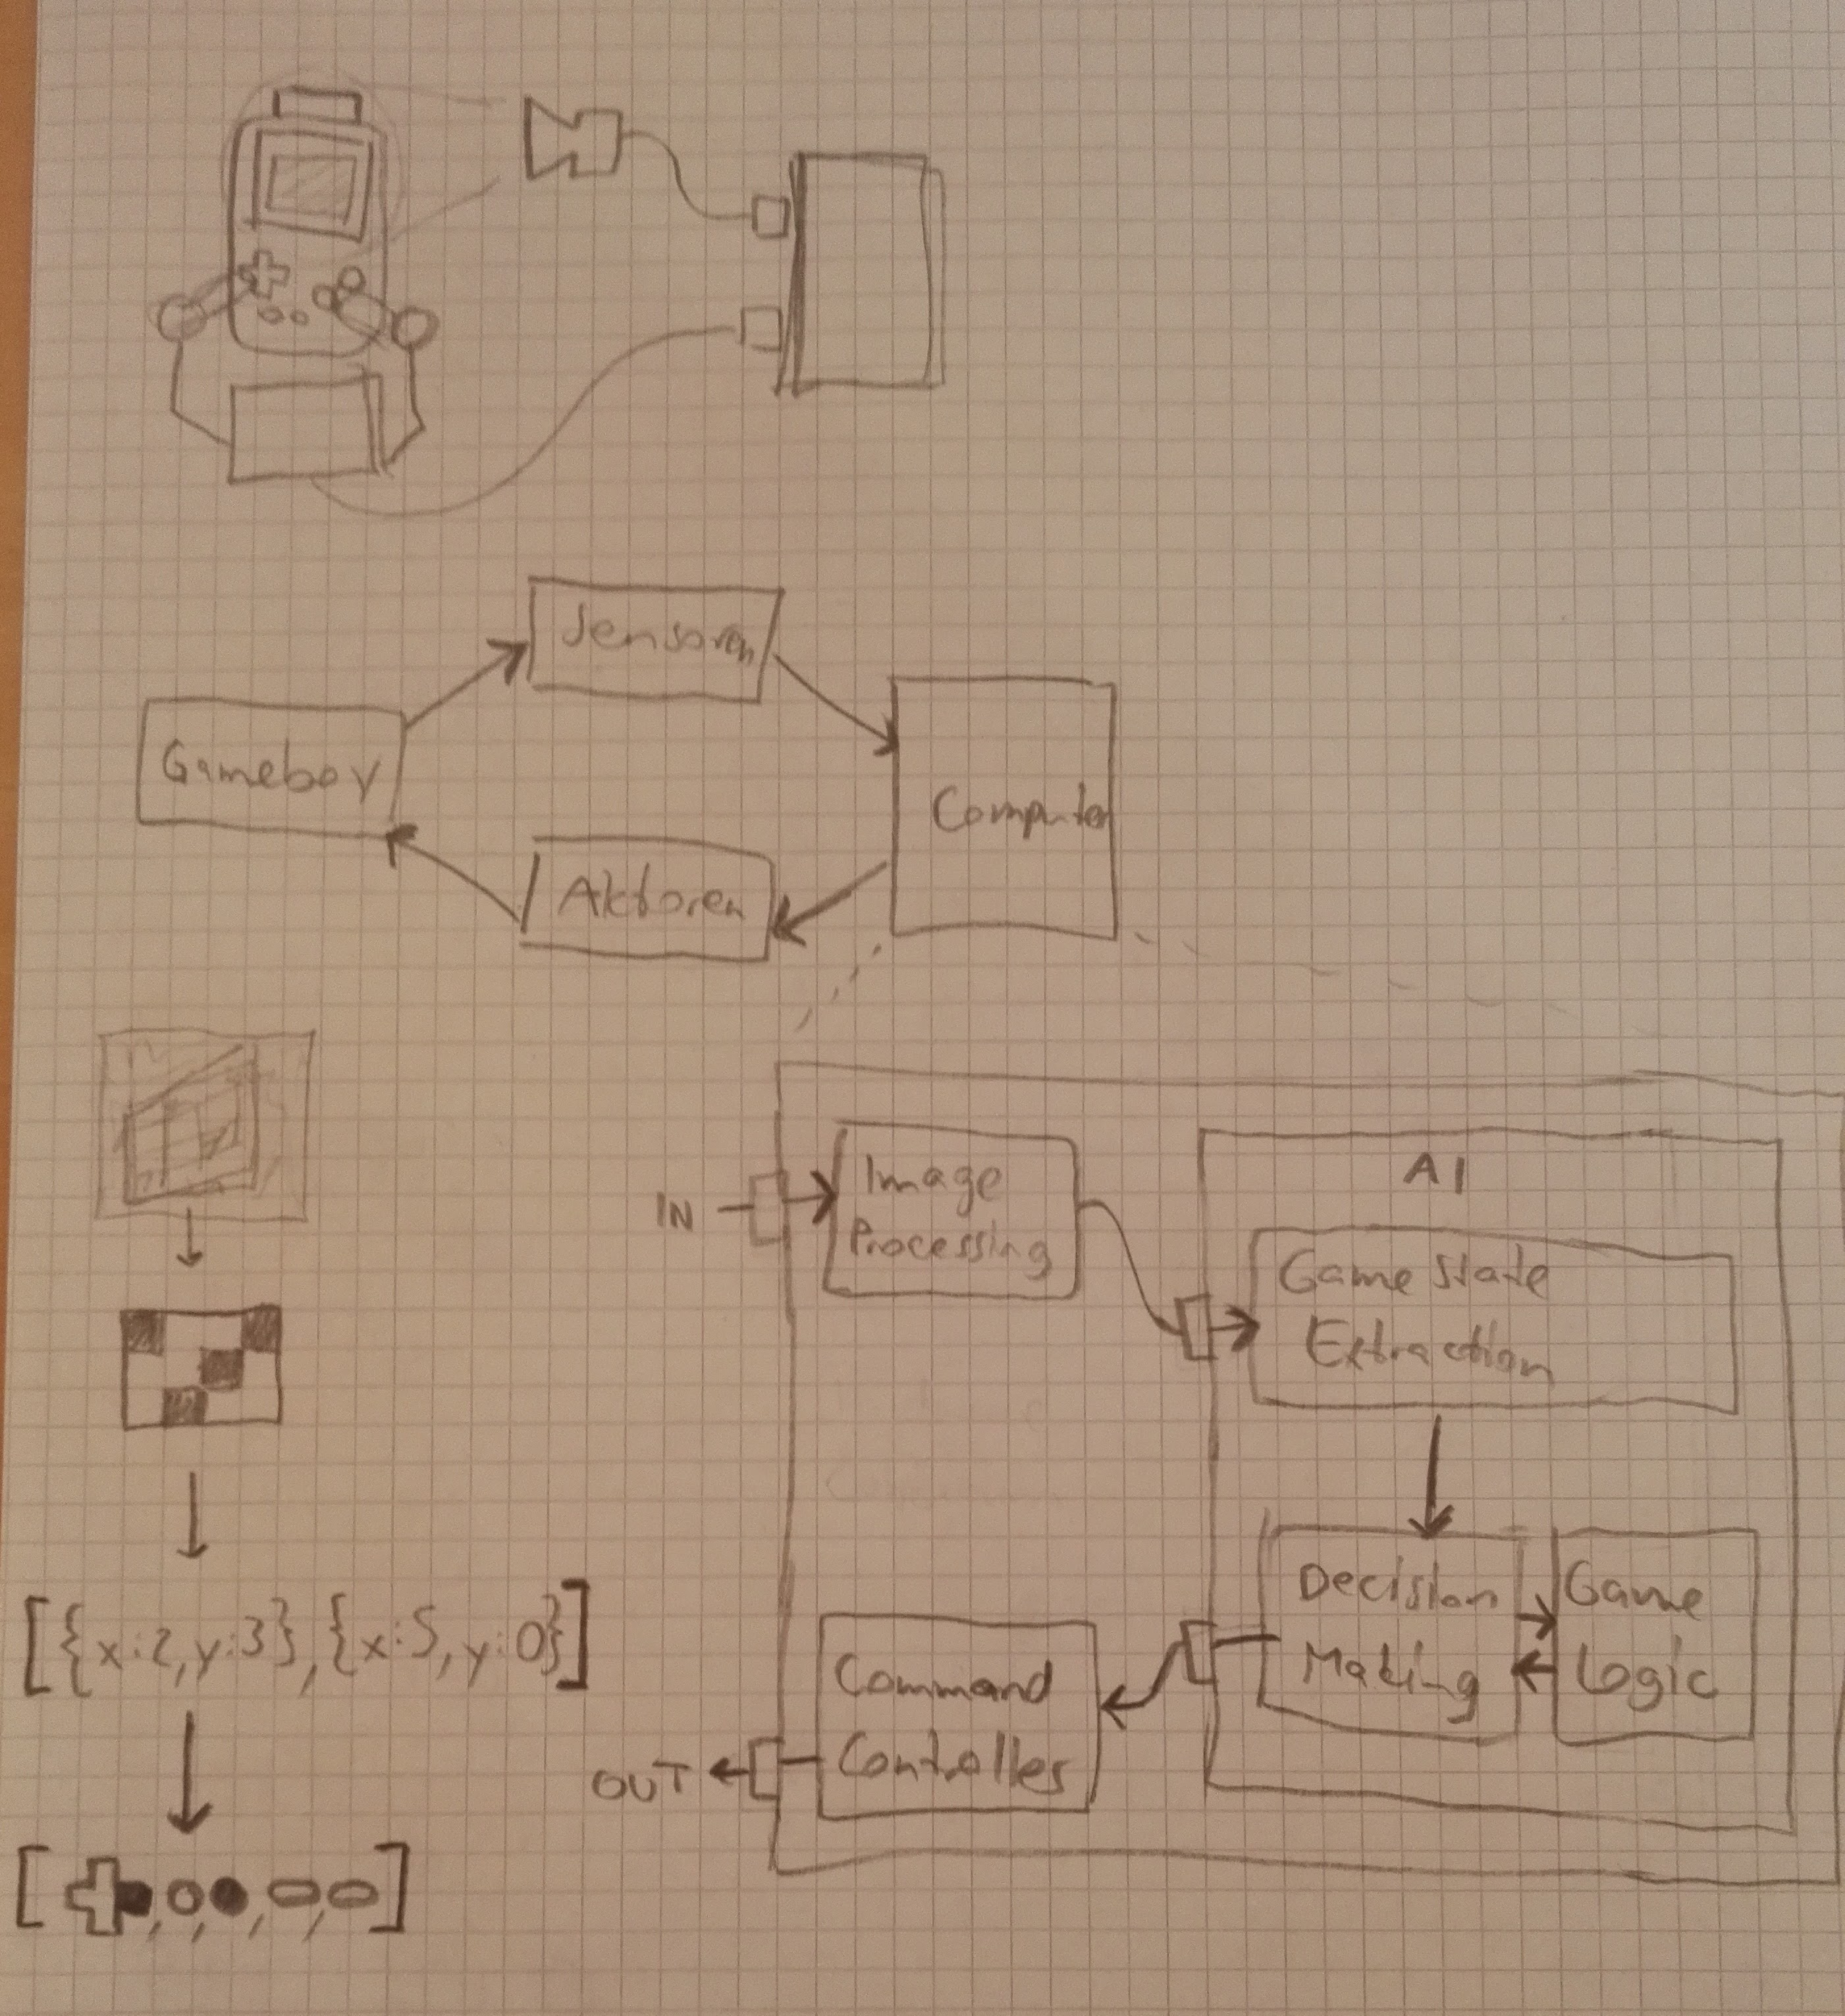 Sensoren
Gameboy
Computer
Aktoren
IN
Image
Processing
AI
Game State
Extraction
Decision
Making
Game
Logic
Command
Controller
OUT
[{x:2,y:3},{x:5,y:0}]